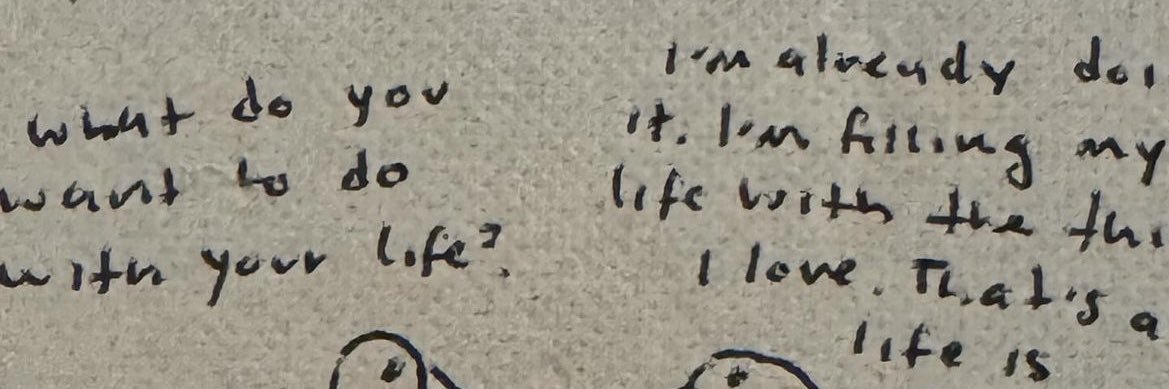 what do you
want to do
with your life?
I'm already
it. I'm filling my
life with the
I love. That's a
life is